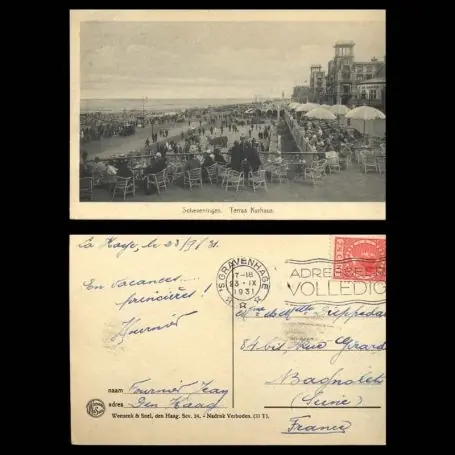 Scheveningen. Terras Kurhaus.
La Haye, le 23/9/31.
En vacances....
premières !
Fournier
naam Fournier Jean
adres Den Haag
Weenenk & Snel, den Haag. Sev. 24. - Nadruk Verboden. (11 T).
'S GRAVENHAGE
7-18
23-IX
1931
ADRESSEER
VOLLEDIG
84 bis, Rue Girard
Bagnolet
(Seine)
France